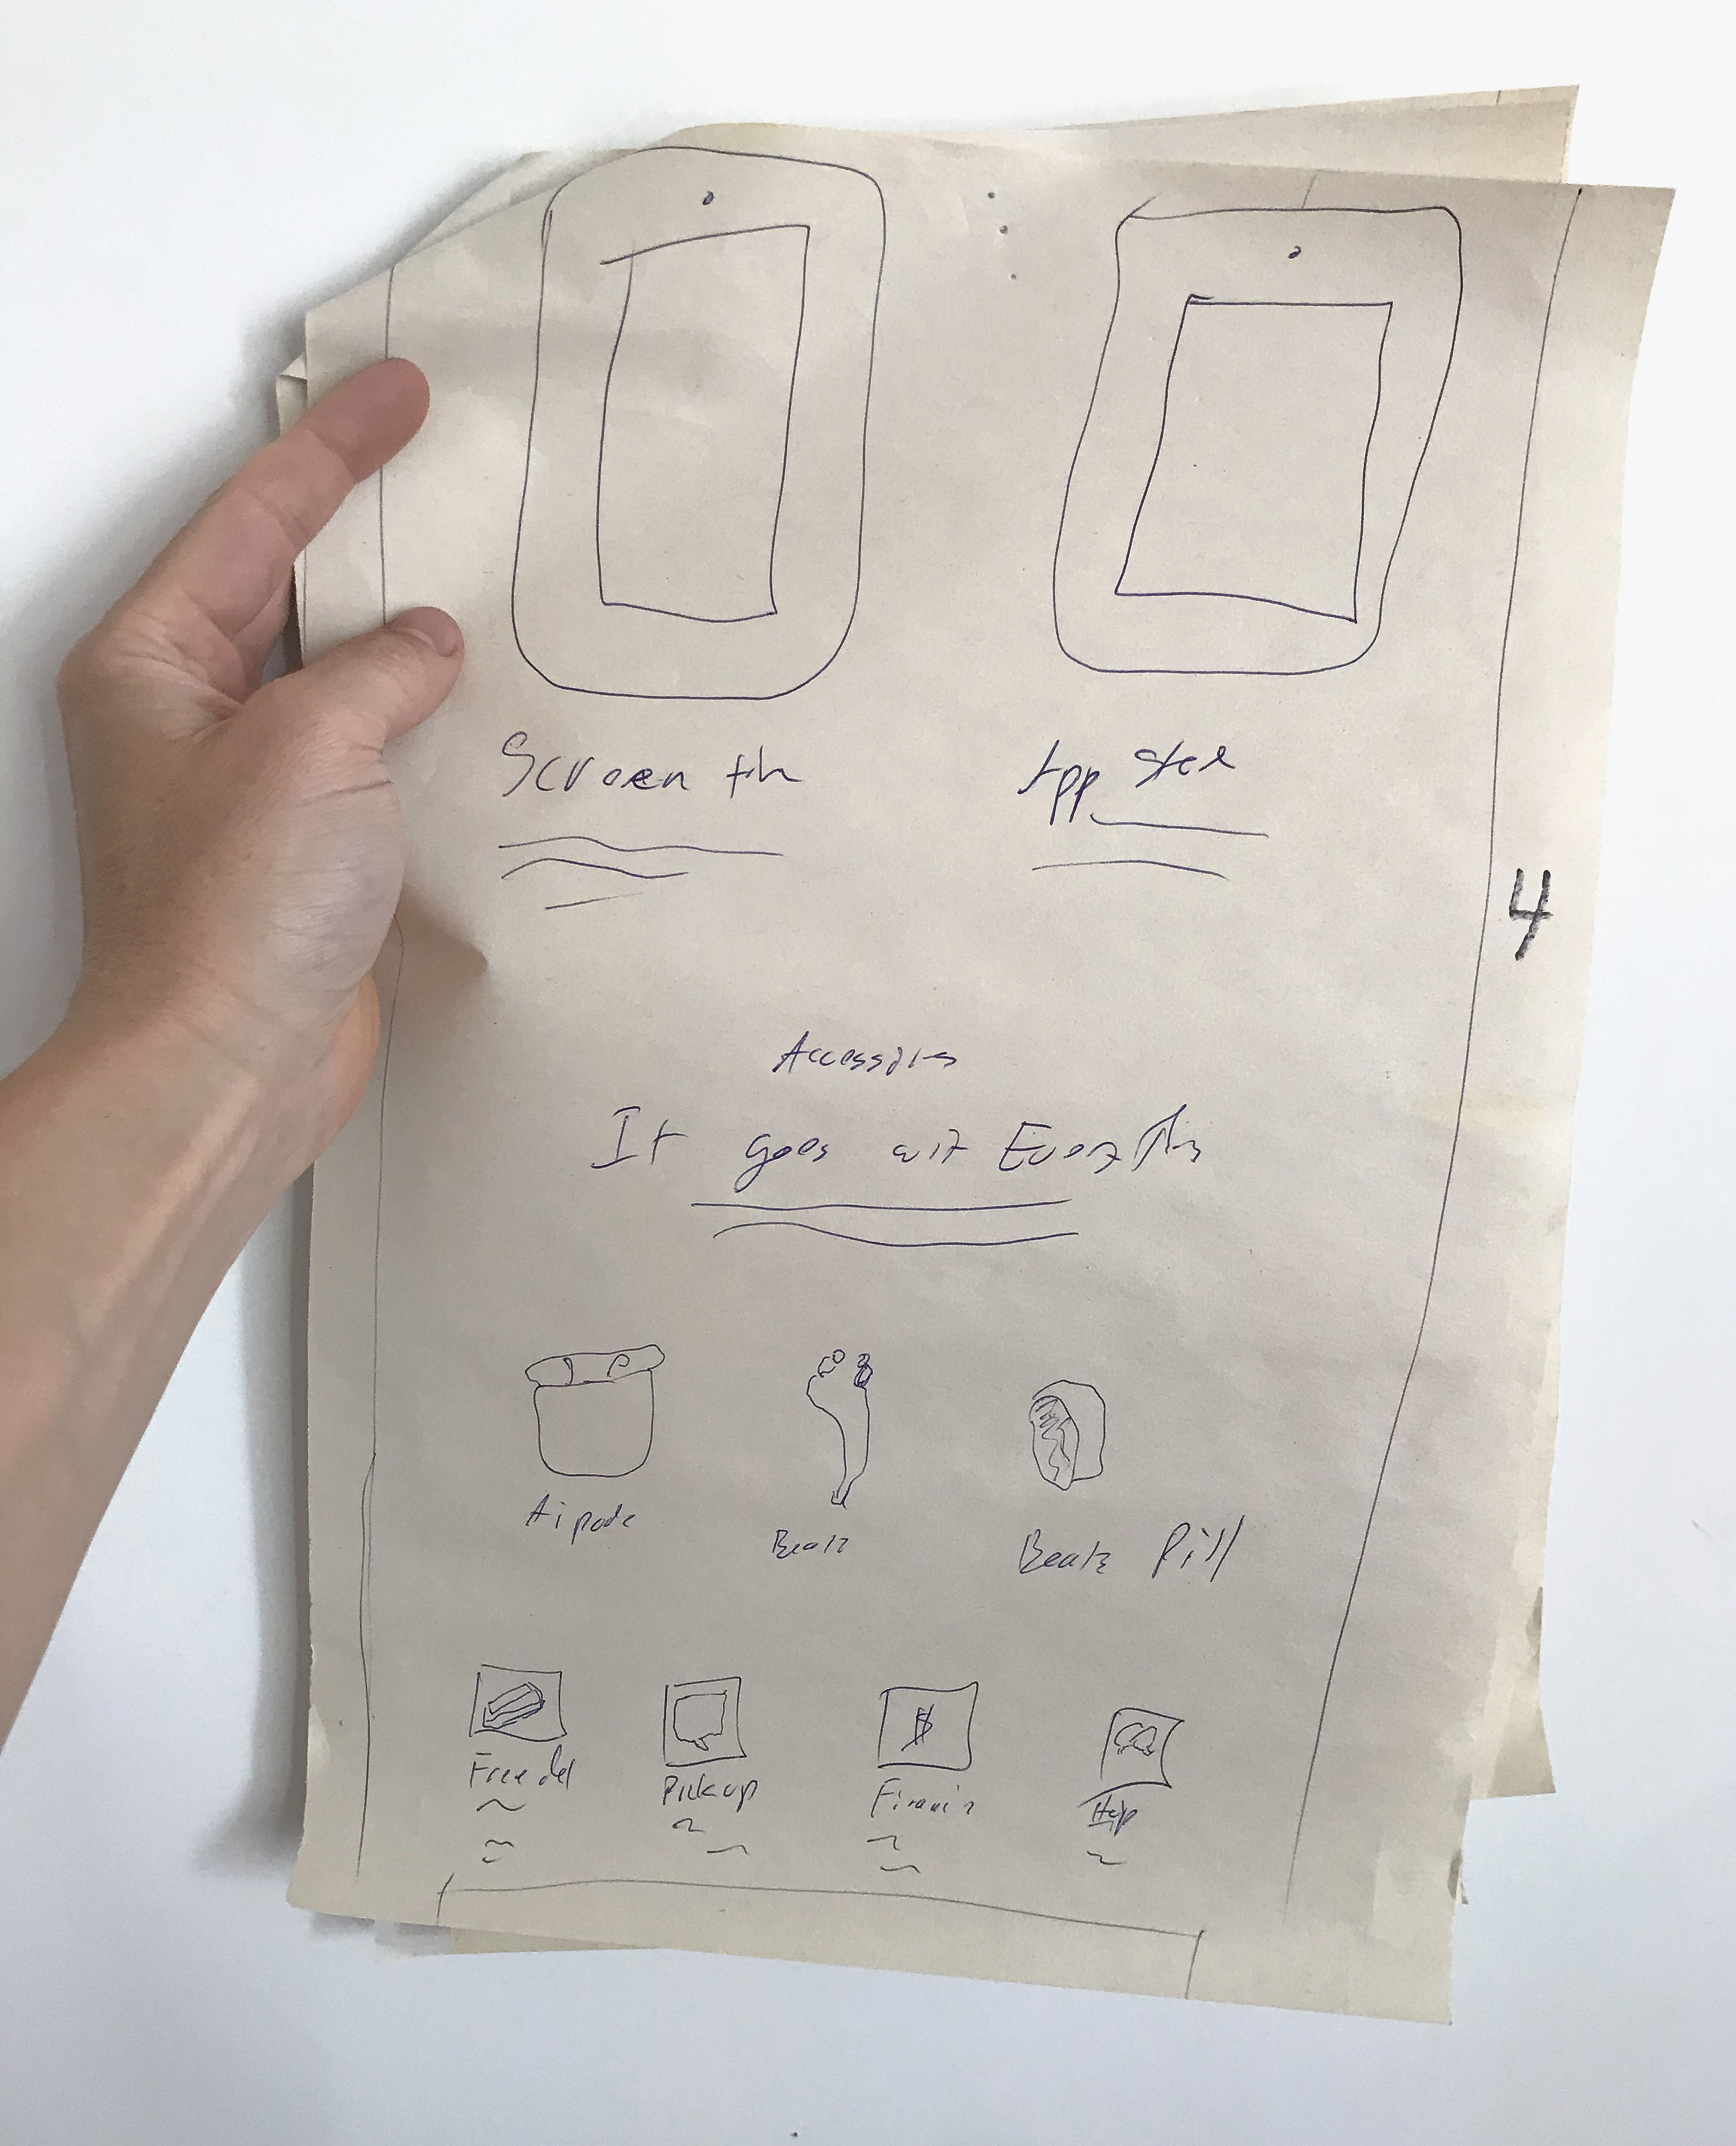 Screen tim
App Store
4
Accessories
It goes wit Everythin
Aipods
Beats
Beats Pill
Free del
Pick up
$
Financin
Help